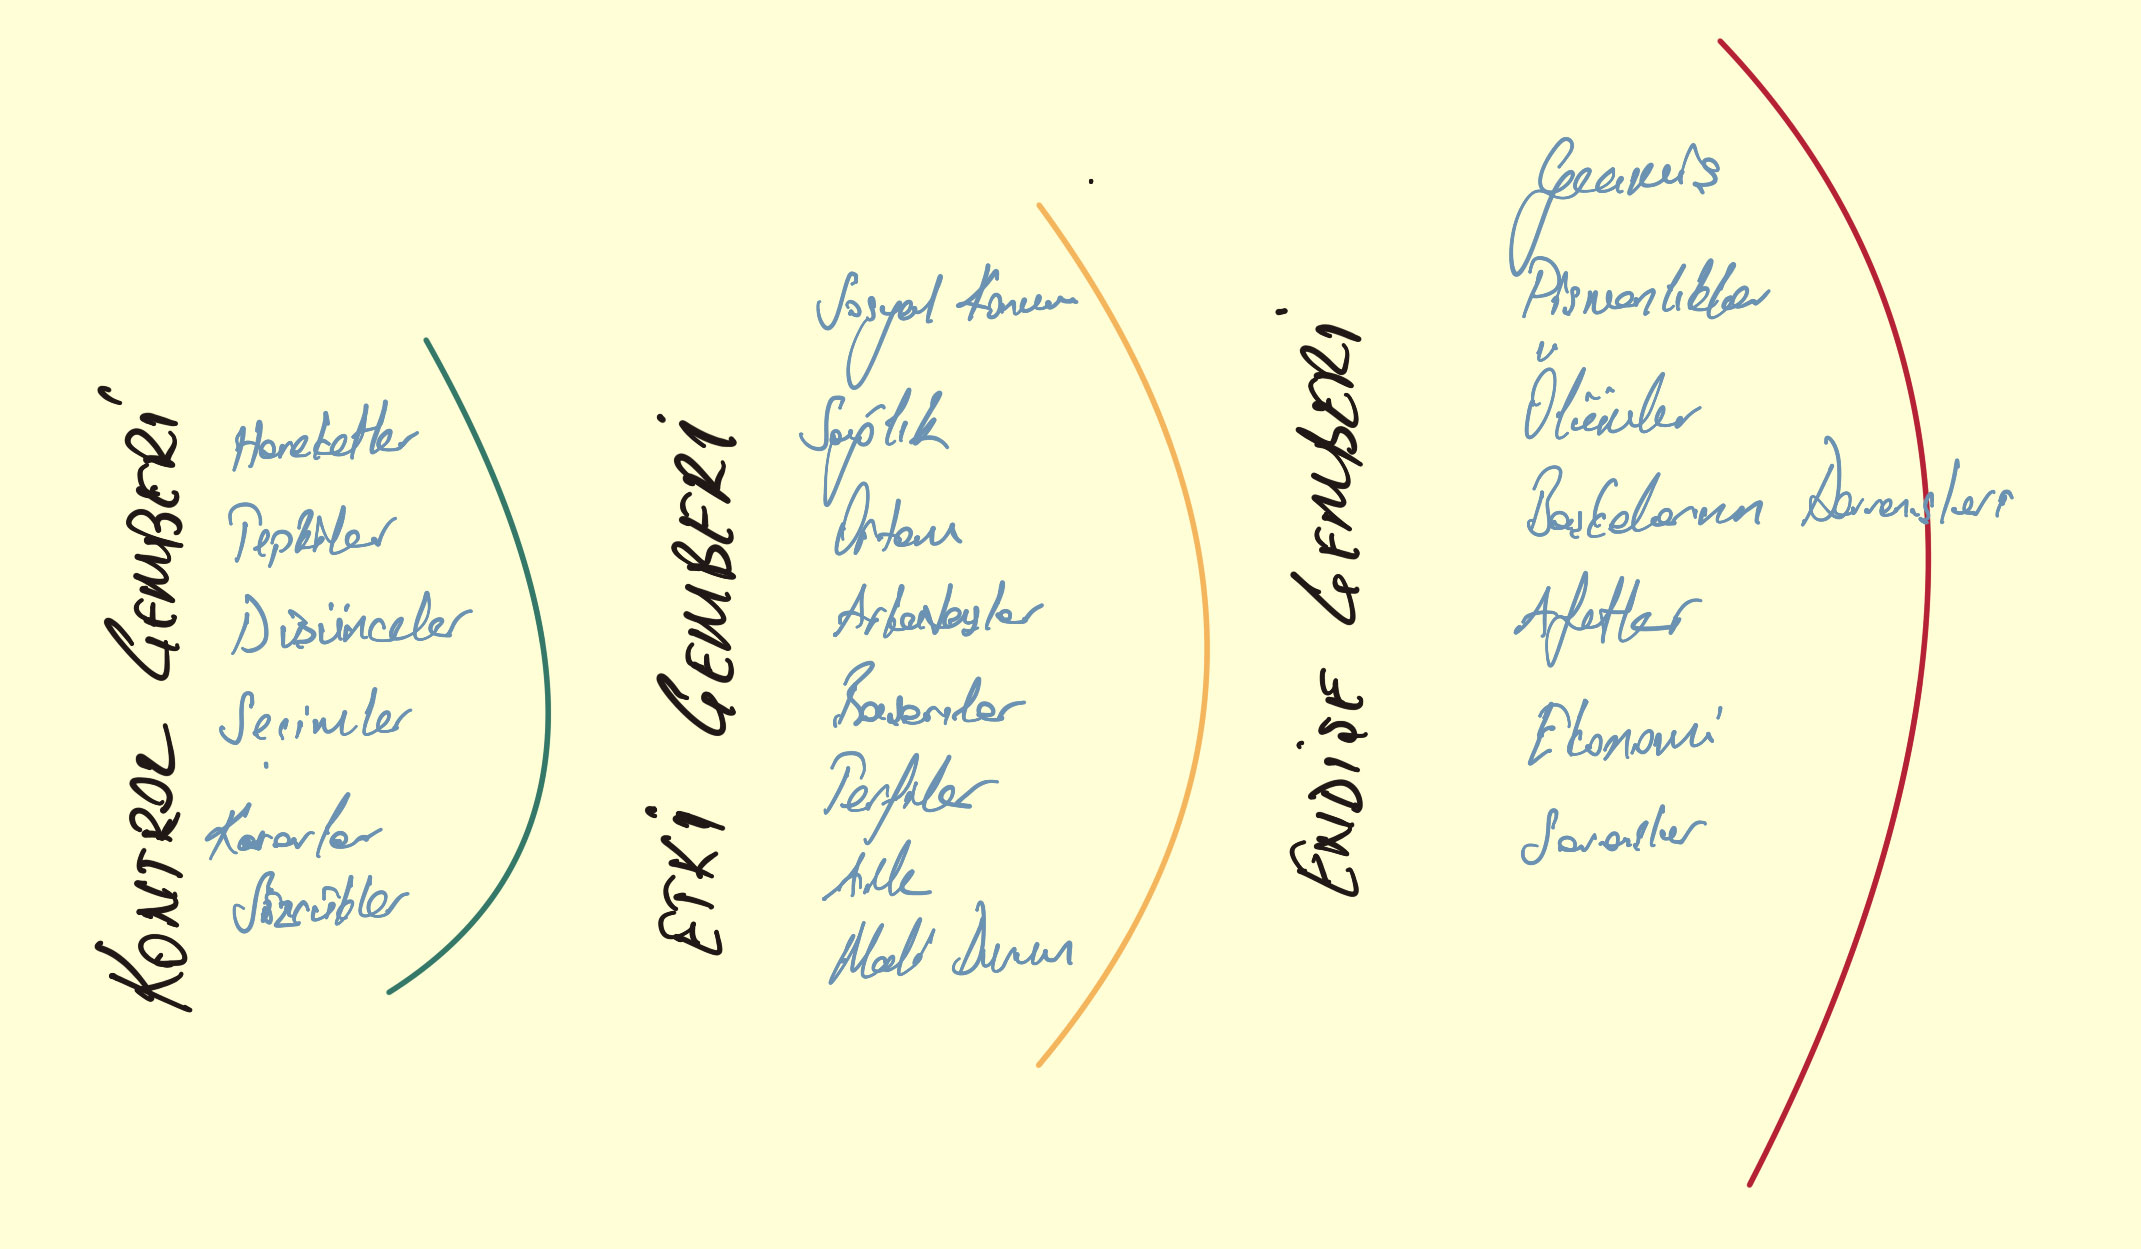 KONTROL ÇEMBERİ
Hareketler
Tepkiler
Düşünceler
Seçimler
Kararlar
ETKİ ÇEMBERİ
Sosyal Konum
Sağlık
Ortam
Arkadaşlar
Başarılar
Terfiler
Aile
Mali Durum
ENDİŞE ÇEMBERİ
Geçmiş
Pişmanlıklar
Ölümler
Başkalarının Davranışları
Afetler
Ekonomi
Savaşlar